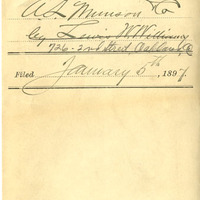 A L Munson
by Lewis W Williams
726 - 2nd Street Oakland
Filed January 5th, 1897